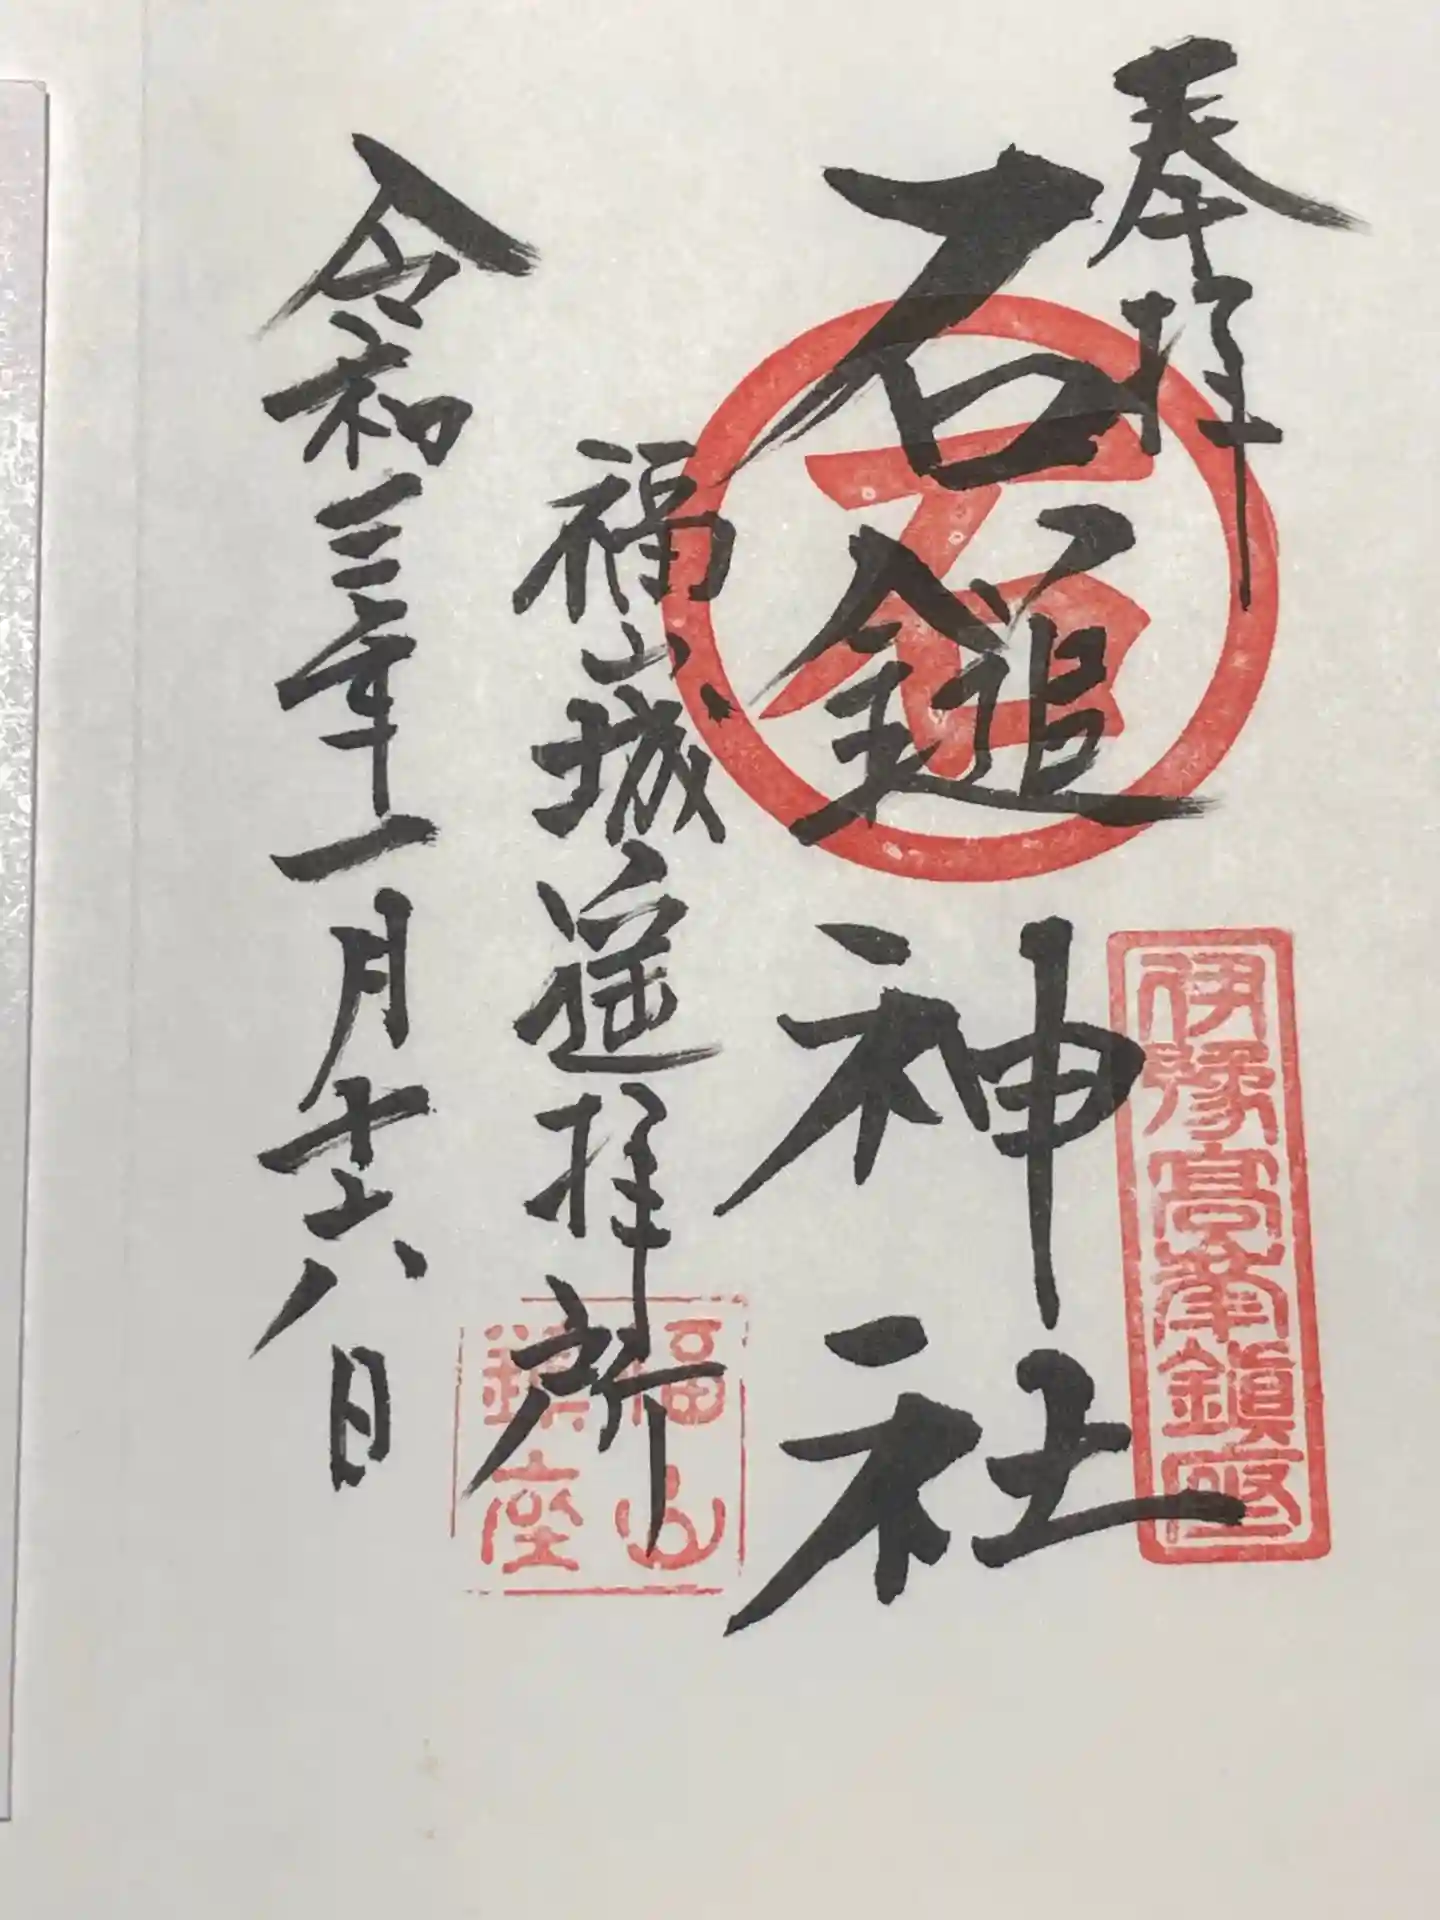 奉拝
伊豫高峯鎮座
石
石鎚神社
福山城遥拝所
福山
鎮座
令和三年一月十六日